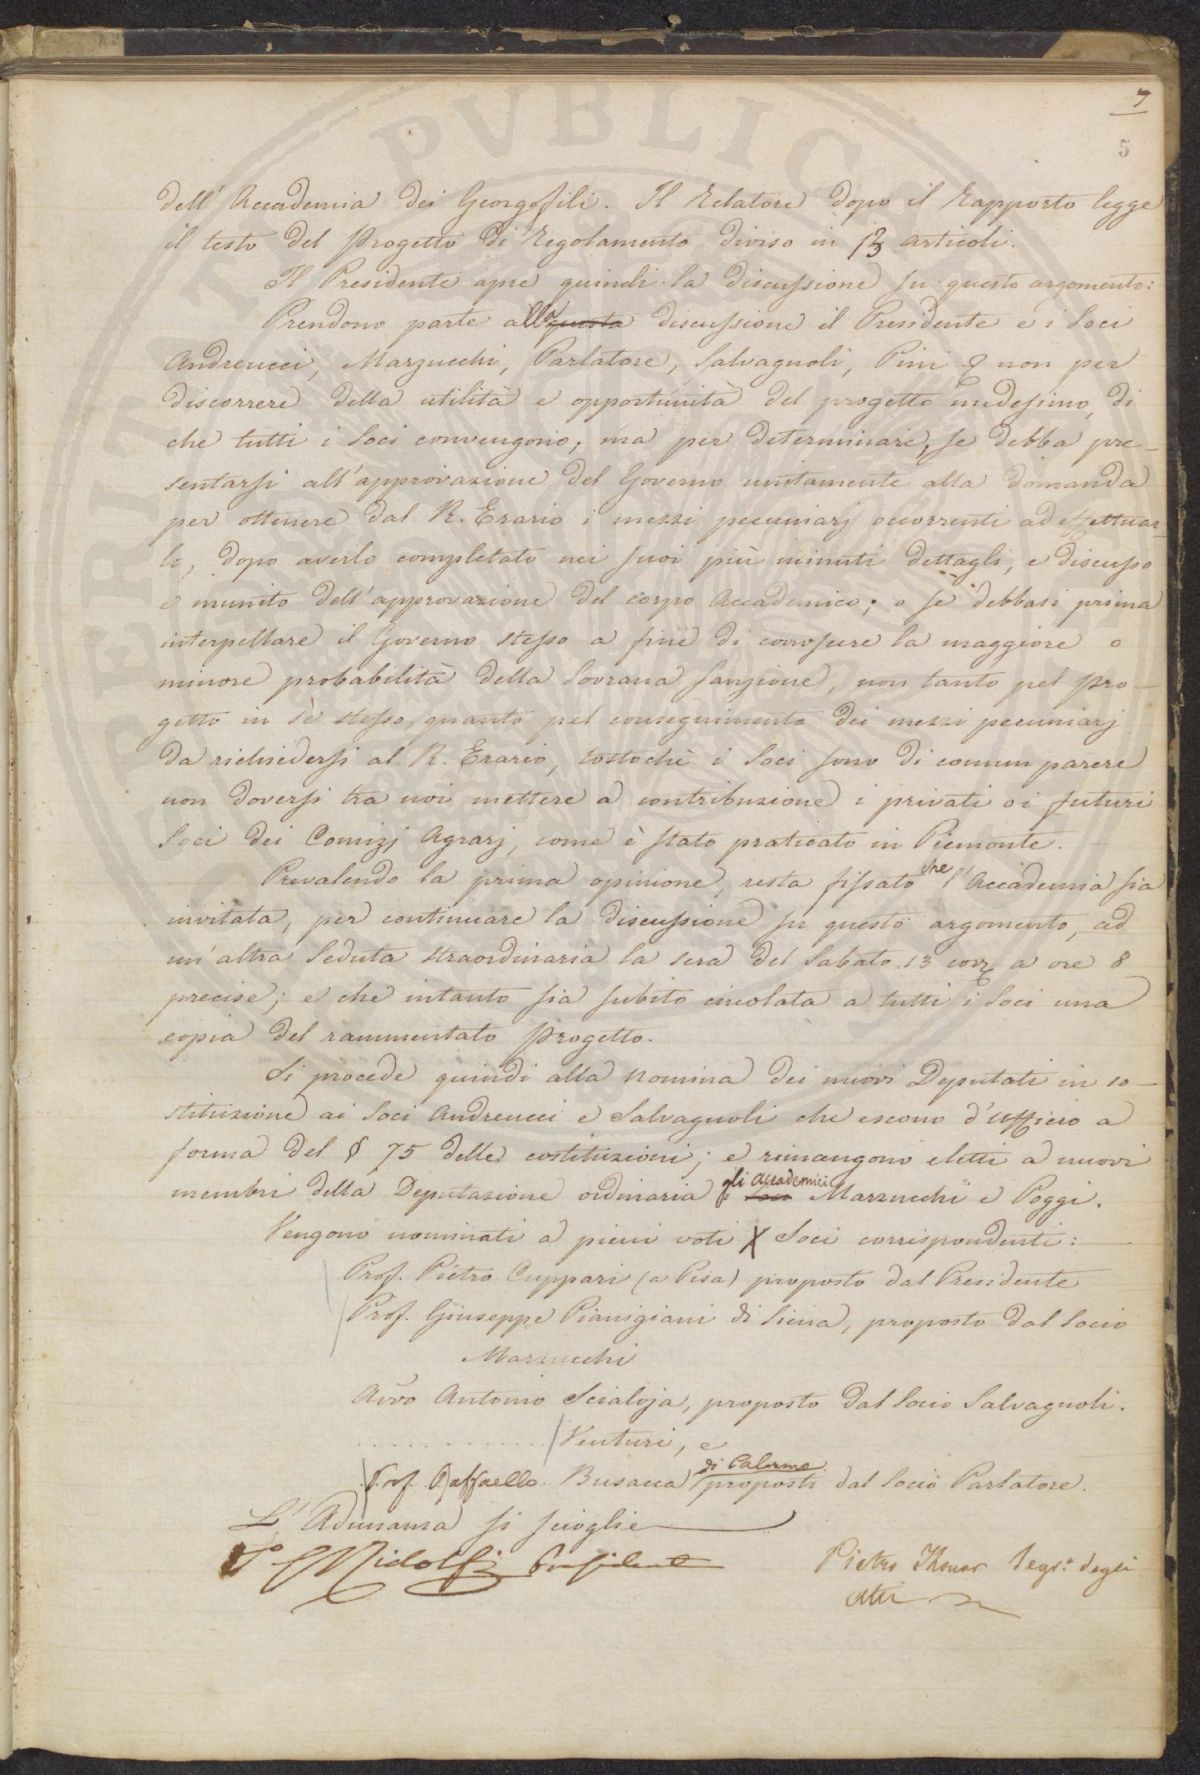 7
5
dell' Accademia dei Georgofili. Il Relatore dopo il Rapporto legge
il testo del Progetto di Regolamento diviso in 13 articoli.
Il Presidente apre quindi la discussione su questo argomento:
Prendono parte alla questa discussione il Presidente e i Soci
Andreucci, Marzucchi, Parlatore, Salvagnoli, Pini & non per
discorrere della utilità e opportunità del progetto medesimo, di
che tutti i Soci convengono; ma per determinare, se debba pre-
sentarsi all'approvazione del Governo unitamente alla domanda
per ottenere dal R. Erario i mezzi pecuniarj occorrenti ad effettuar-
lo, dopo averlo completato nei suoi più minuti dettagli, e discusso
e munito dell'approvazione del corpo Accademico; o se debbasi prima
interpellare il Governo stesso a fine di conoscere la maggiore o
minore probabilità della Sovrana sanzione, non tanto pel Pro-
getto in sè stesso, quanto pel conseguimento dei mezzi pecuniarj
da richiedersi al R. Erario, tostochè i Soci sono di comun parere
non doversi tra noi mettere a contribuzione i privati o i futuri
Soci dei Comizj Agrarj, come è stato praticato in Piemonte.
Prevalendo la prima opinione, resta fissato che l'Accademia sia
invitata, per continuare la discussione su questo argomento, ad
un'altra Seduta straordinaria la sera del Sabato 13 corr.e a ore 8
precise; e che intanto sia subito circolata a tutti i Soci una
copia del rammentato Progetto.
Si procede quindi alla nomina dei nuovi Deputati in so-
stituzione ai Soci Andreucci e Salvagnoli che escono d'Ufficio a
forma del § 75 delle costituzioni; e rimangono eletti a nuovi
membri della Deputazione ordinaria gli Accademici Soci Marzucchi e Poggi.
Vengono nominati a pieni voti Soci corrispondenti:
Prof. Pietro Cuppari (a Pisa) proposto dal Presidente
Prof. Giuseppe Pianigiani di Siena, proposto dal Socio
Marzucchi
Avvo Antonio Scialoja, proposto dal Socio Salvagnoli.
. . . . . . . . . . . Venturi, e
Prof. Raffaello Busacca di Palermo proposti dal Socio Parlatore.
L'Adunanza si scioglie
Ridolfi Presidente
Pietro Thouar Segr.o degli
Atti